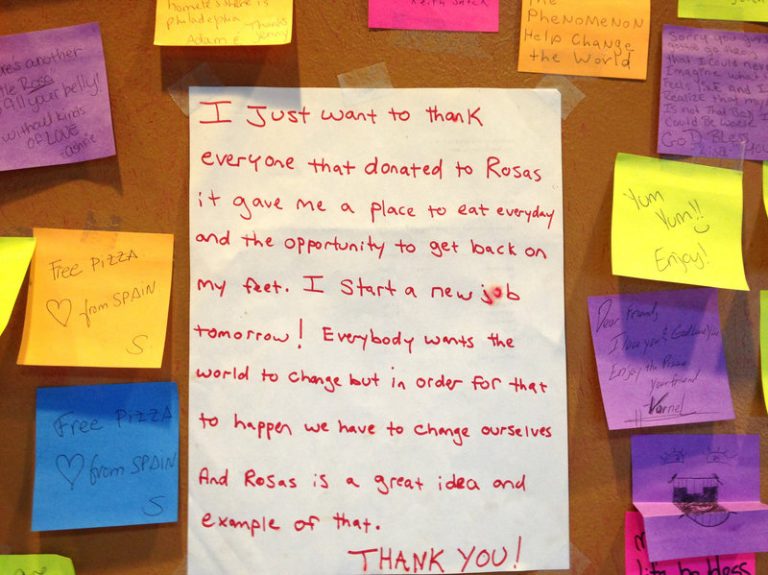 homeless there is
philadelphia
Adam E
Thanks
Jenny
Keith
The
PHENOMENON
Help Change
the World
another
Rosa
fill your belly!
without kinds
OF LOVE
Sorry
that I could never
Imagine what
Feels like and I
Realize that my
Is not that Bad I
Could Be worse
GOD BLESS
YOU
I Just want to thank
everyone that donated to Rosas
it gave me a place to eat everyday
and the opportunity to get back on
my feet. I start a new job
tomorrow! Everybody wants the
world to change but in order for that
to happen we have to change ourselves
And Rosas is a great idea and
example of that.
THANK YOU!
Free PIZZA
♡ from SPAIN
S
Free PIZZA
♡ from SPAIN
S
Yum
Yum!!
Enjoy!
Dear Friend,
I love you & God loves you
Enjoy the Pizza
your friend
Vornel